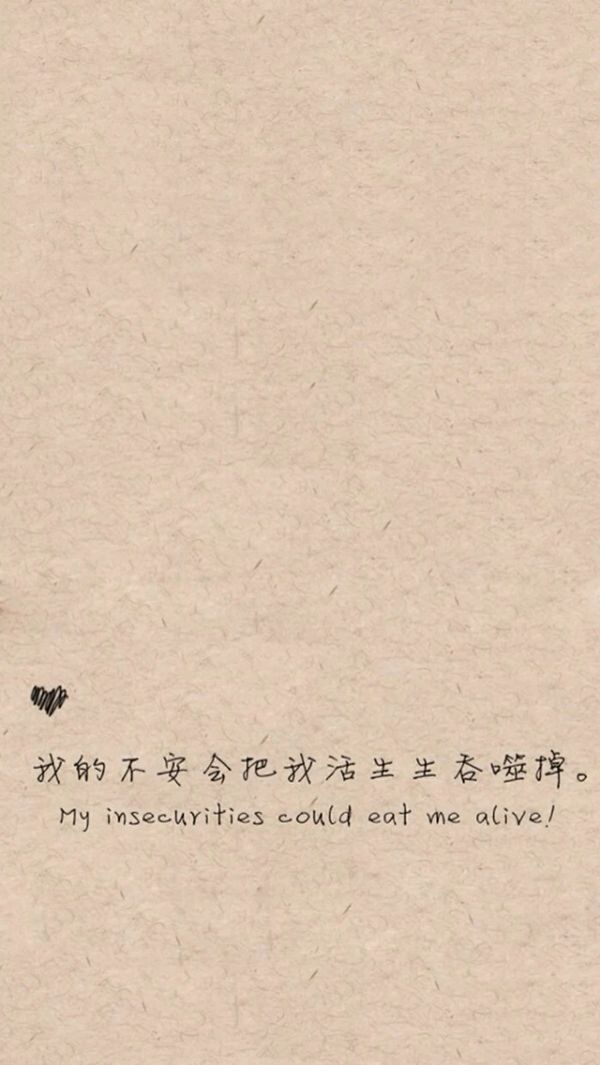 我的不安会把我活生生吞噬掉。
My insecurities could eat me alive!